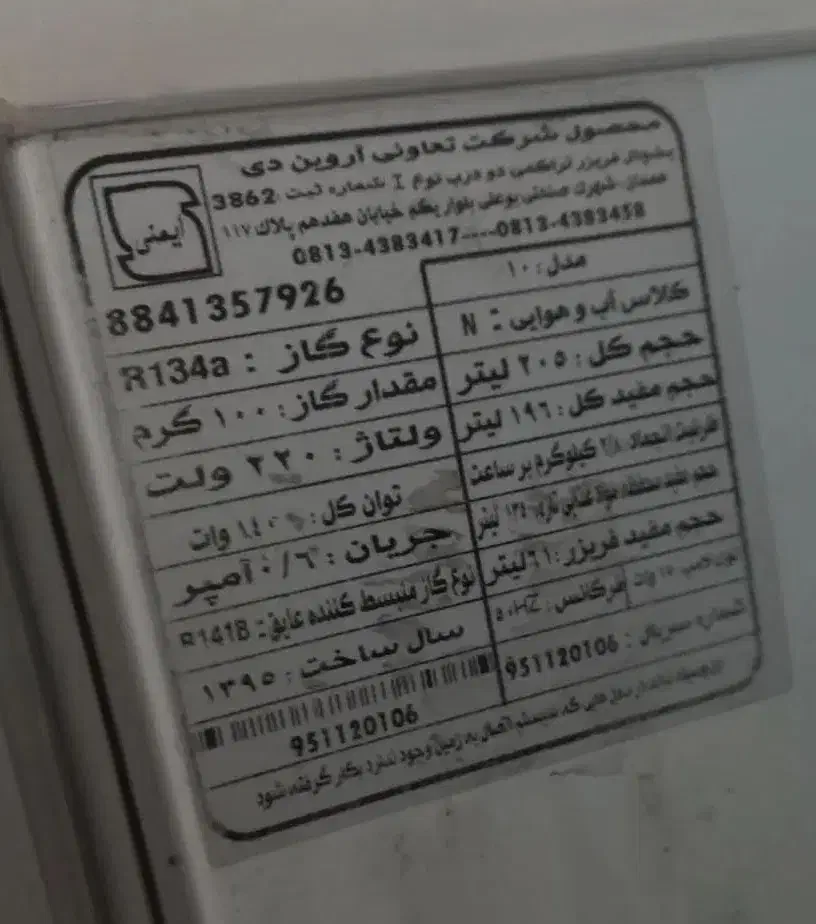 محصول شرکت تعاونی آروین دی
یخچال فریزر تراکمی دو درب نوع I شماره ثبت :3862
همدان-شهرک صنعتی بوعلی بلوار یکم خیابان هفدهم پلاک ۱۱۷
0813-4383417----0813-4383458
ایمنی
8841357926
مدل : ۱۰
کلاس آب و هوایی : N
نوع گاز : R134a
حجم کل : ۲۰۵ لیتر
مقدار گاز : ۱۰۰ گرم
حجم مفید کل : ۱۹۶ لیتر
ولتاژ : ۲۲۰ ولت
ظرفیت انجماد : کیلوگرم بر ساعت
توان کل : وات
حجم مفید لیتر
جریان : ۰/۶ آمپر
حجم مفید فریزر : ۶۱ لیتر
نوع گاز منبسط کننده عایق : R141B
وات فرکانس : ۵۰HZ
سال ساخت : ۱۳۹۵
شماره سریال : 951120106
951120106
که سیستم اتصال به زمین وجود ندارد بکار گرفته شود